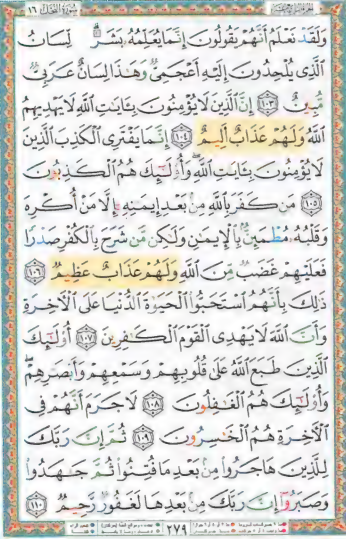 سُورَةُ النَّحْلِ ١٦
وَلَقَدْ نَعْلَمُ أَنَّهُمْ يَقُولُونَ إِنَّمَا يُعَلِّمُهُۥ بَشَرٌۗ لِّسَانُ
ٱلَّذِى يُلْحِدُونَ إِلَيْهِ أَعْجَمِىٌّ وَهَٰذَا لِسَانٌ عَرَبِىٌّ
مُّبِينٌ ١٠٣ إِنَّ ٱلَّذِينَ لَا يُؤْمِنُونَ بِـَٔايَٰتِ ٱللَّهِ لَا يَهْدِيهِمُ
ٱللَّهُ وَلَهُمْ عَذَابٌ أَلِيمٌ ١٠٤ إِنَّمَا يَفْتَرِى ٱلْكَذِبَ ٱلَّذِينَ
لَا يُؤْمِنُونَ بِـَٔايَٰتِ ٱللَّهِۖ وَأُو۟لَٰٓئِكَ هُمُ ٱلْكَٰذِبُونَ
١٠٥ مَن كَفَرَ بِٱللَّهِ مِنۢ بَعْدِ إِيمَٰنِهِۦٓ إِلَّا مَنْ أُكْرِهَ
وَقَلْبُهُۥ مُطْمَئِنٌّۢ بِٱلْإِيمَٰنِ وَلَٰكِن مَّن شَرَحَ بِٱلْكُفْرِ صَدْرًا
فَعَلَيْهِمْ غَضَبٌ مِّنَ ٱللَّهِ وَلَهُمْ عَذَابٌ عَظِيمٌ ١٠٦
ذَٰلِكَ بِأَنَّهُمُ ٱسْتَحَبُّوا۟ ٱلْحَيَوٰةَ ٱلدُّنْيَا عَلَى ٱلْـَٔاخِرَةِ
وَأَنَّ ٱللَّهَ لَا يَهْدِى ٱلْقَوْمَ ٱلْكَٰفِرِينَ ١٠٧ أُو۟لَٰٓئِكَ
ٱلَّذِينَ طَبَعَ ٱللَّهُ عَلَىٰ قُلُوبِهِمْ وَسَمْعِهِمْ وَأَبْصَٰرِهِمْۖ
وَأُو۟لَٰٓئِكَ هُمُ ٱلْغَٰفِلُونَ ١٠٨ لَا جَرَمَ أَنَّهُمْ فِى
ٱلْـَٔاخِرَةِ هُمُ ٱلْخَٰسِرُونَ ١٠٩ ثُمَّ إِنَّ رَبَّكَ
لِلَّذِينَ هَاجَرُوا۟ مِنۢ بَعْدِ مَا فُتِنُوا۟ ثُمَّ جَٰهَدُوا۟
وَصَبَرُوٓا۟ إِنَّ رَبَّكَ مِنۢ بَعْدِهَا لَغَفُورٌ رَّحِيمٌ ١١٠
٢٧٩